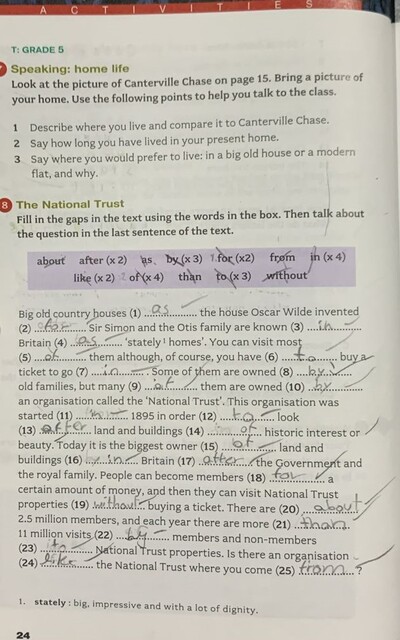 A C T I V I T I E S
T: GRADE 5
Speaking: home life
Look at the picture of Canterville Chase on page 15. Bring a picture of
your home. Use the following points to help you talk to the class.
1 Describe where you live and compare it to Canterville Chase.
2 Say how long you have lived in your present home.
3 Say where you would prefer to live: in a big old house or a modern
flat, and why.
8 The National Trust
Fill in the gaps in the text using the words in the box. Then talk about
the question in the last sentence of the text.
about after (x 2) as by (x 3) for (x2) from in (x 4)
like (x 2) of (x 4) than to (x 3) without
Big old country houses (1) as the house Oscar Wilde invented
(2) for Sir Simon and the Otis family are known (3) in
Britain (4) as 'stately¹ homes'. You can visit most
(5) of them although, of course, you have (6) to buy a
ticket to go (7) in. Some of them are owned (8) by
old families, but many (9) of them are owned (10) by
an organisation called the 'National Trust'. This organisation was
started (11) in 1895 in order (12) to look
(13) after land and buildings (14) of historic interest or
beauty. Today it is the biggest owner (15) of land and
buildings (16) in Britain (17) after the Government and
the royal family. People can become members (18) for a
certain amount of money, and then they can visit National Trust
properties (19) without buying a ticket. There are (20) about
2.5 million members, and each year there are more (21) than
11 million visits (22) by members and non-members
(23) to National Trust properties. Is there an organisation
(24) like the National Trust where you come (25) from ?
1. stately : big, impressive and with a lot of dignity.
24